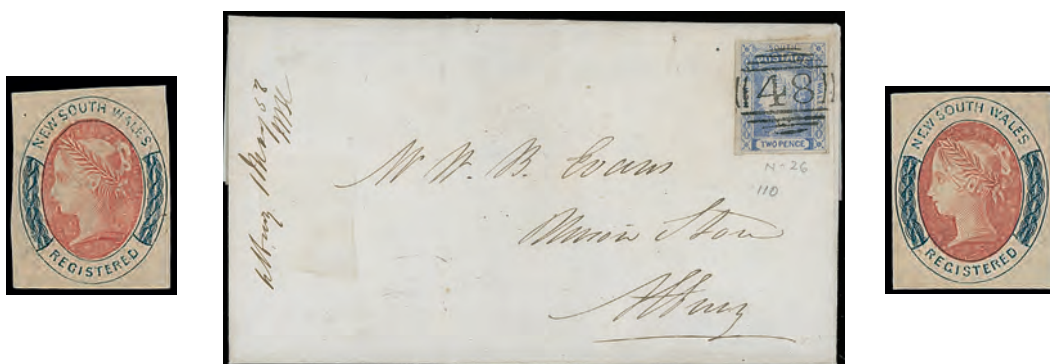 NEW SOUTH WALES
REGISTERED
Albury 1 May 58
POSTAGE
WALES
48
TWO PENCE
N-26
110
Mr W. B. Evans
Store
Albury
NEW SOUTH WALES
REGISTERED